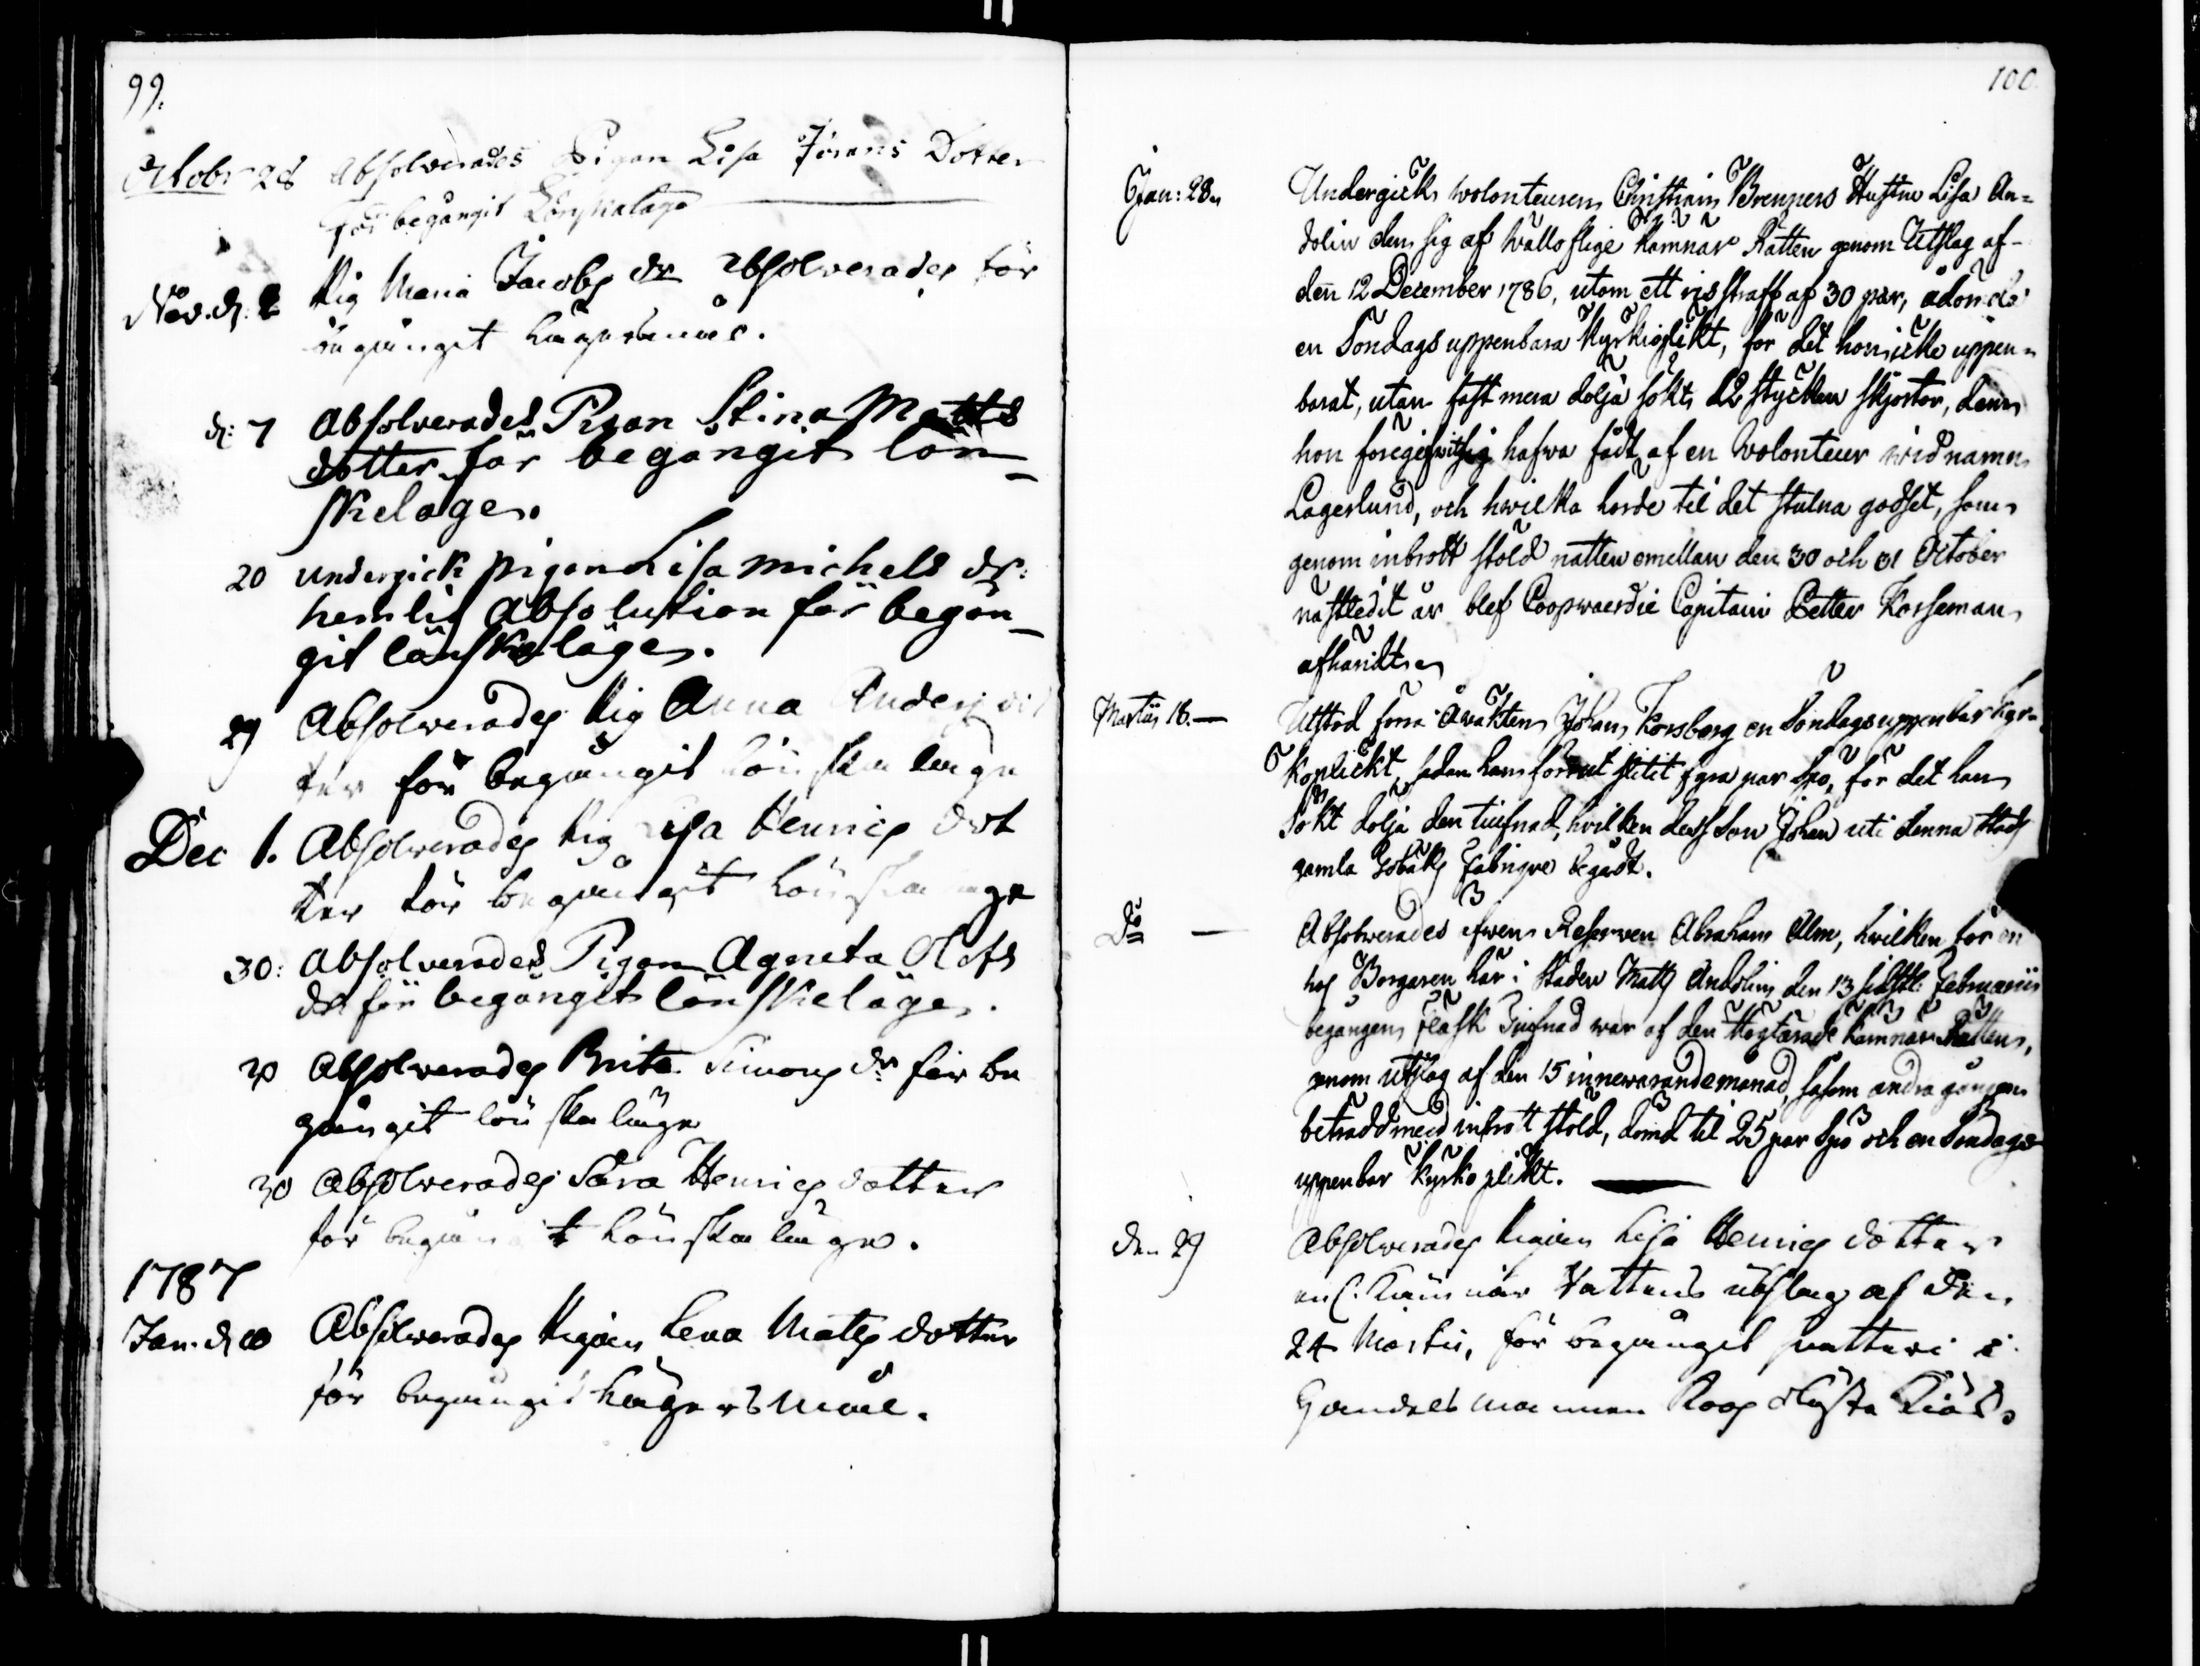 99.
Octobr 28 Absolverades Pigan Lisa Jörans Dotter
för begångit Lönskaläge
Nov. d. 2 Pig Maria Jacobs dr absolverades för
begånget lägersmål.
d: 7 Absolverades Pigan Stina Matts
dotter för begångit lön-
skeläge.
20 undergick pigan Lisa Michels dr:
hemlig Absolution för begån-
git lönskeläge.
29 Absolverades Pig Anna Anders dot
ter för begångit lönska läge
Dec 1. Absolverades Pig Lisa Henrics dot
ter för begångit lönska läge
30: Absolverades Pigan Agneta Olofs
dr för begångit lönskeläge.
30 Absolverades Brita Simons dr för be
gångit lönska läge
30 Absolverades Sara Henrics dotter
för begångit lönska läge.
1787
Jan. d. Absolverades Pigan Lena Mats dotter
för begångit lägersmål.
100.
Jan: 28. Undergick Volonteuren Christian Brenners Hustru Lisa An-
dolin den sig af Välloflige Kämnärs Rätten genom Utslag af
den 12 December 1786, utom ett risstraff af 30 par, ådömda
en Söndags uppenbara Kyrkioplikt, för det hon icke uppen-
barat, utan fast mera dölja sökt 12 stycken skjortor, dem
hon föregifvit sig hafwa fådt af en Volonteur vid namn
Lagerlund, och hwilka hörde til det stulna godset, som
genom inbrott stöld natten emellan den 30 och 31 October
nästledit år blef Coopwaerdie Capitain Petter Korseman
afhändt.
Martii 18. — Utstod förra Åwakten Johan Korsberg en Söndags uppenbar Kyr-
koplickt, sedan han förrut slitit fyra par Spö, för det han
sökt dölja den tiufnad, hvilken dess Son Johan uti denna Stads
gamla Tobaks Fabrique begådt.
Do — Absolverades äfven Reserven Abraham Alm, hvilken för en
hos Borgaren här i Staden Matts Andolin den 13 sidstl. Februarii
begången Fläsk Tiufnad war af den Högtärade Kämnärs Rätten,
genom utslag af den 15 innewarande månad, såsom andra gången
beträdd med inbrott stöld, dömd til 25 par Spö och en Söndags
uppenbar Kyrkoplikt.
Den 29 Absolverades Pigan Lisa Henrics dotter
Kämnärs Rättens utslag af den
24 Martii, för begånget snatteri i
Handelsmannen